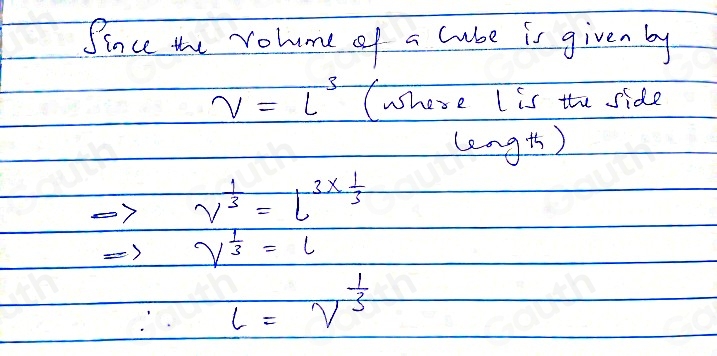 Since the volume of a cube is given by
V = L³ (where L is the side
length)
=> V^{1/3} = L^{3×1/3}
=> V^{1/3} = L
∴ L = V^{1/3}